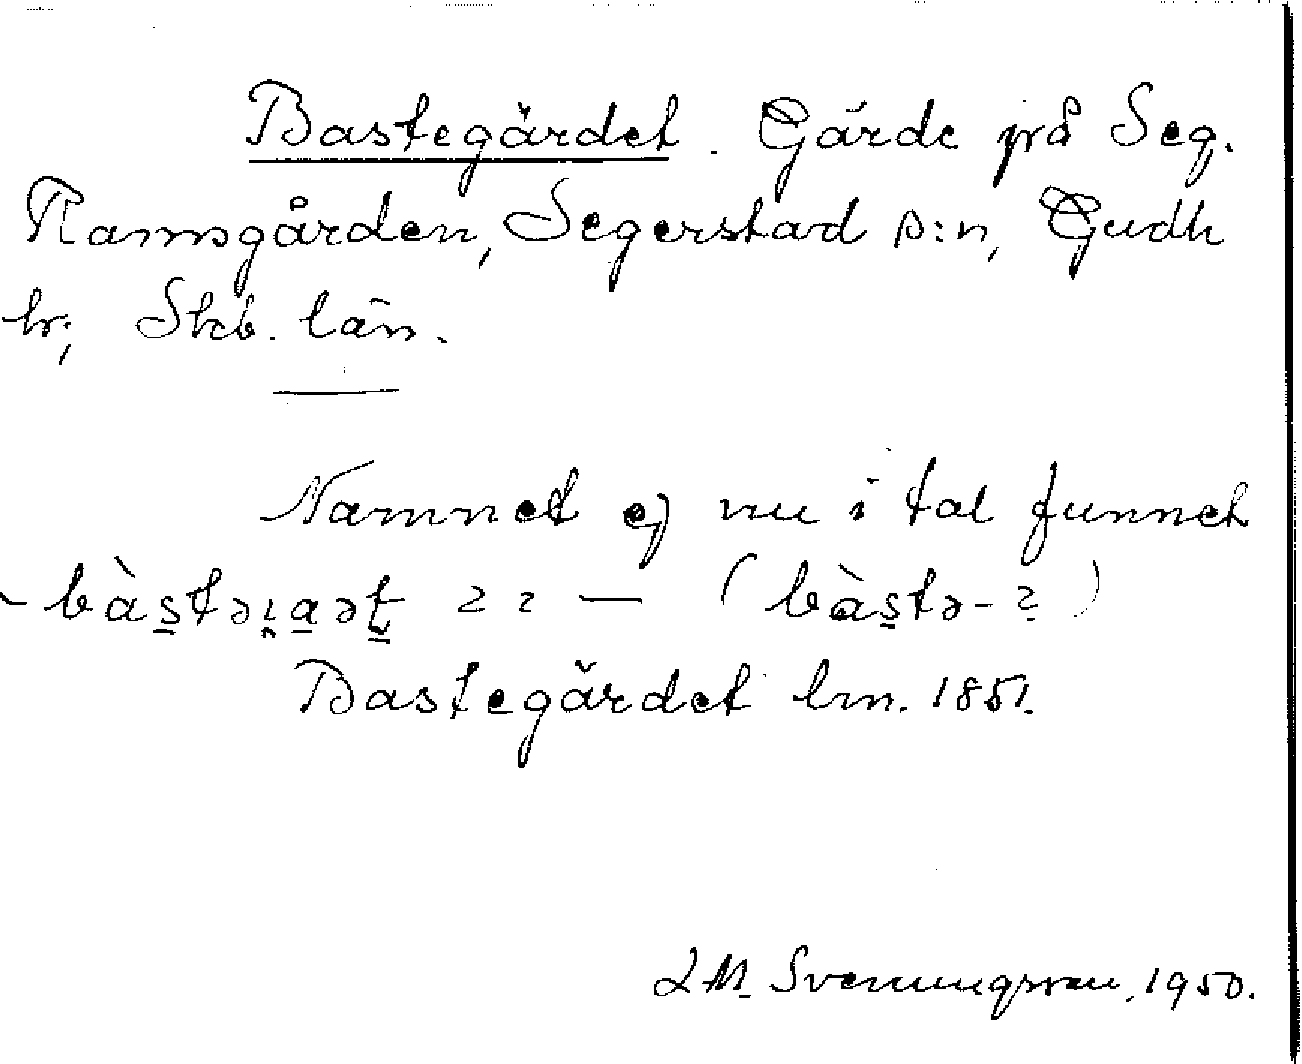 Bastegärdet. Gärde på Seg.
Ramsgården, Segerstad s:n, Gudh
hr; Skb. län.
Namnet ej nu i tal funnet
(bàstə- ?)
Bastegärdet lm. 1851.
L M. Svenungsson, 1950.